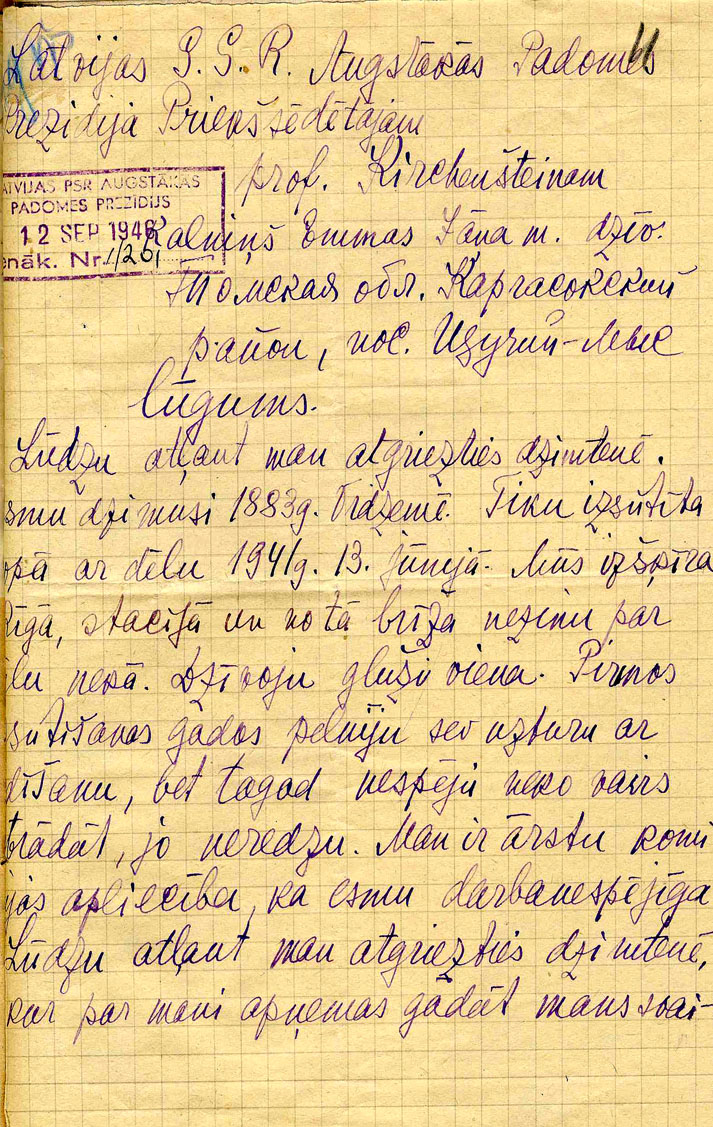 Latvijas P.S.R. Augstākās Padomes
Prezidija Priekšsēdētājam
prof. Kirchenšteinam
ATVIJAS PSR AUGSTĀKĀS
PADOMES PREZĪDIJS
12 SEP 1946
enāk. Nr. 1/261
Kalniņš Emmas Jāņa m. dzīv.
Томская обл. Каргасокский
район, пос. Узунгий-Мыс
lūgums.
Lūdzu atļaut man atgriezties dzimtenē.
smu dzimusi 1883g. Vidzemē. Tiku izsūtīta
opā ar dēlu 1941g. 13. jūnijā. Mūs izšķīra
Rīgā, stacijā un no tā brīža nezinu par
lu nekā. Dzīvoju gluži viena. Pirmos
sūtīšanas gados pelnīju sev uzturu ar
dīšanu, bet tagad nespēju neko vairs
trādāt, jo neredzu. Man ir ārstu komi
jas apliecība, ka esmu darbanespējīga
Lūdzu atļaut man atgriezties dzimtenē,
kur par mani apņemas gādāt mans svai-